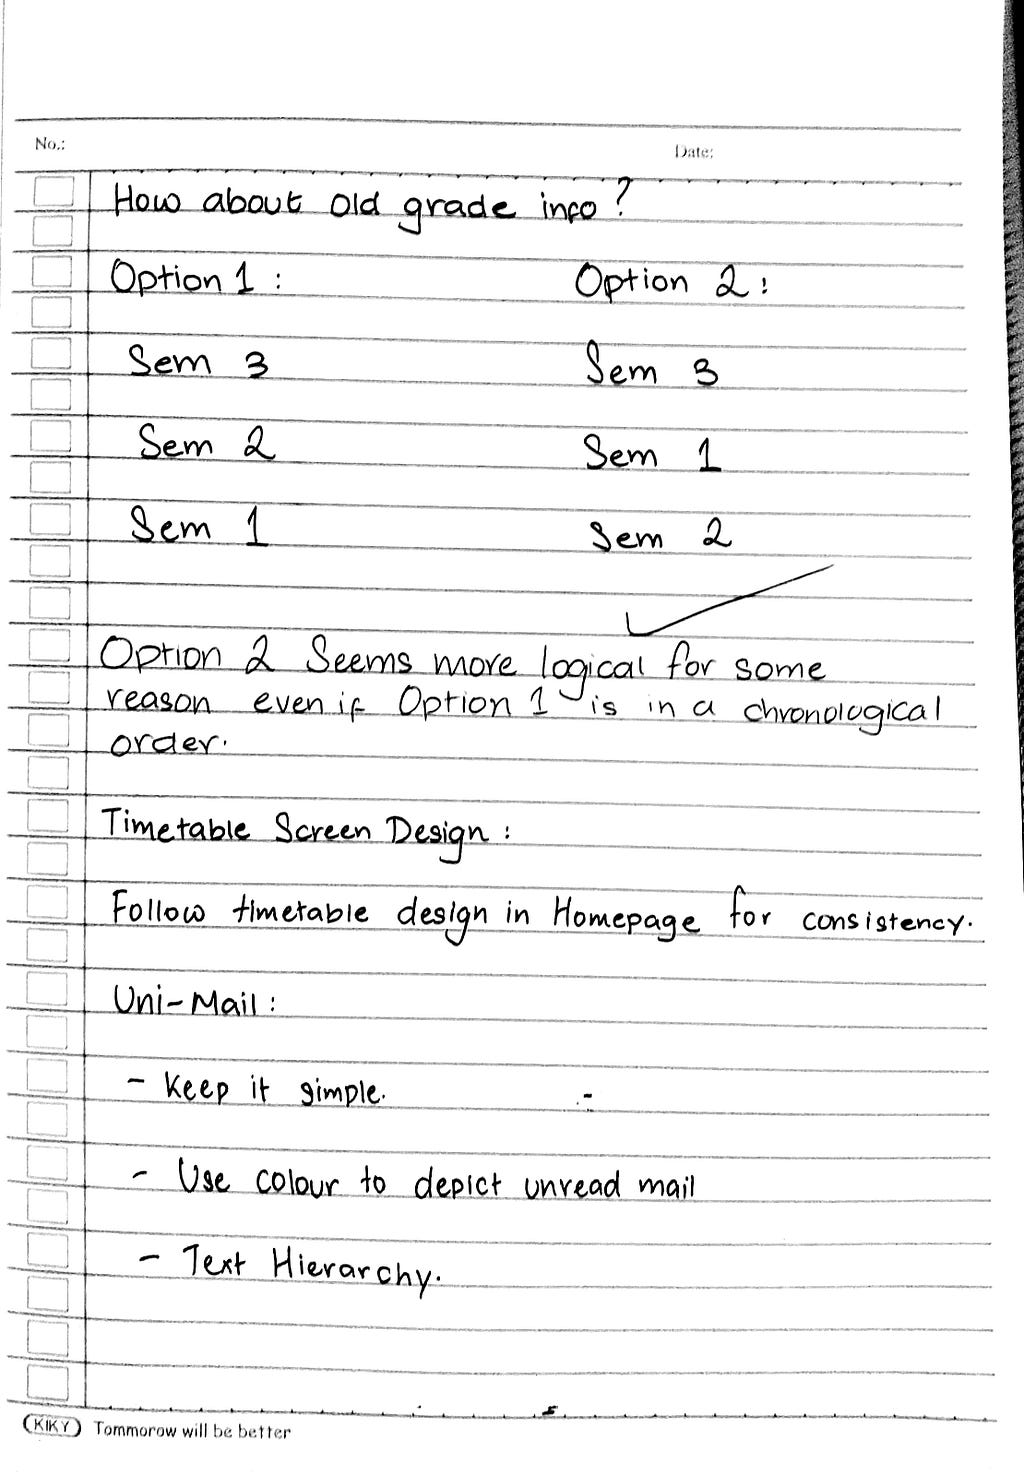 No.:
Date:
How about old grade info?
Option 1 :
Option 2 :
Sem 3
Sem 3
Sem 2
Sem 1
Sem 1
Sem 2
Option 2 Seems more logical for some
reason even if Option 1 is in a chronological
order.
Timetable Screen Design :
Follow timetable design in Homepage for consistency.
Uni-Mail :
- Keep it simple.
- Use colour to depict unread mail
- Text Hierarchy.
KIKY Tommorow will be better